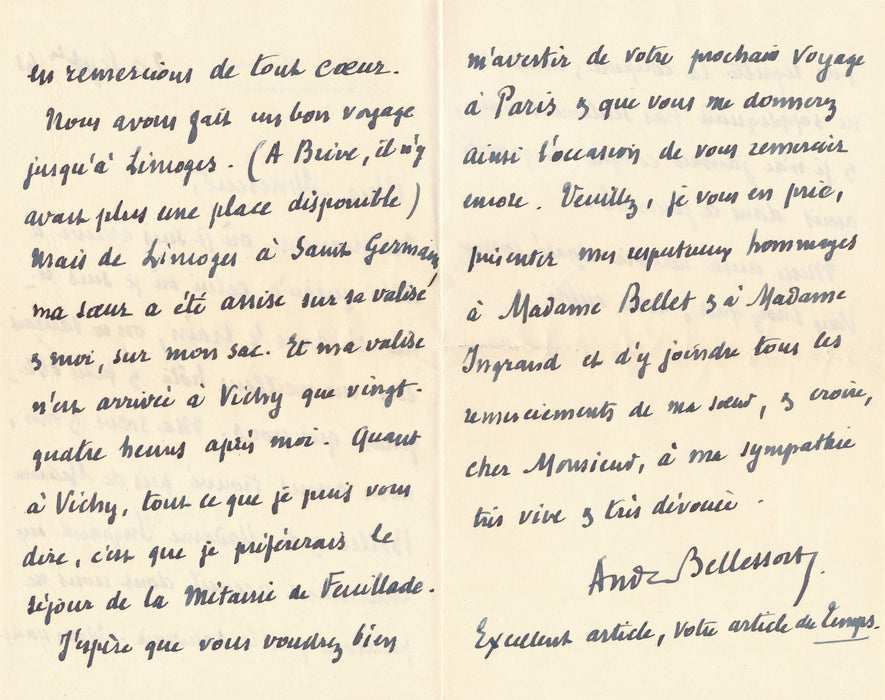 en remercions de tout cœur.
Nous avons fait un bon voyage
jusqu'à Limoges. (A Brive, il n'y
avait plus une place disponible)
Mais de Limoges à Saint Germain,
ma sœur a été assise sur sa valise
& moi, sur mon sac. Et ma valise
n'est arrivée à Vichy que vingt-
quatre heures après moi. Quant
à Vichy, tout ce que je puis vous
dire, c'est que je préférerais le
séjour de la Métairie de Feuillade.
J'espère que vous voudrez bien
m'avertir de votre prochain voyage
à Paris & que vous me donnerez
ainsi l'occasion de vous remercier
encore. Veuillez, je vous en prie,
présenter mes respectueux hommages
à Madame Bellet & à Madame
Ingrand et d'y joindre tous les
remerciements de ma sœur, & croire,
cher Monsieur, à ma sympathie
très vive & très dévouée.
André Bellessort.
Excellent article, votre article du Temps.